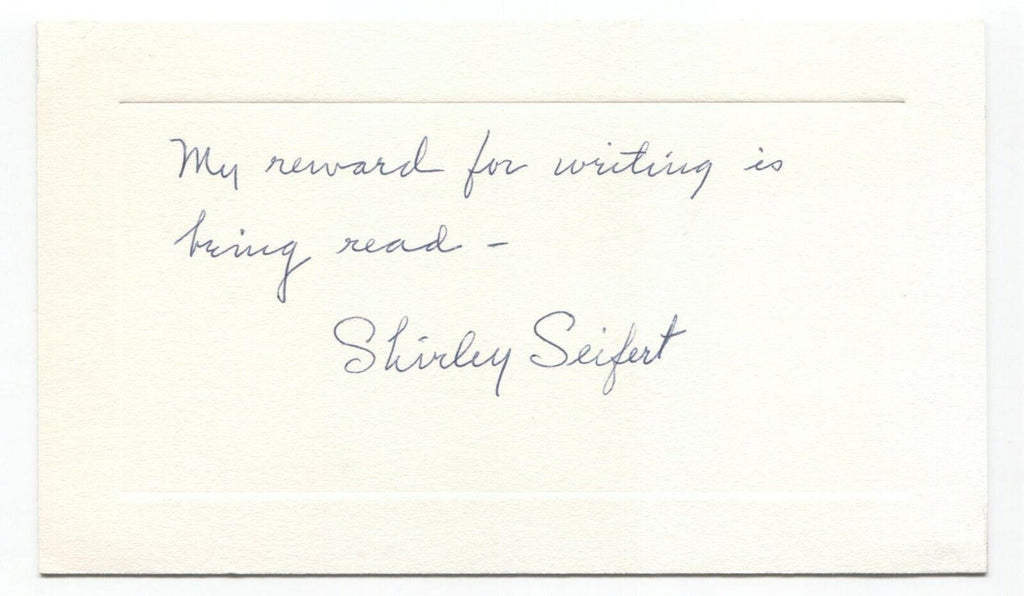 My reward for writing is
being read –
Shirley Seifert